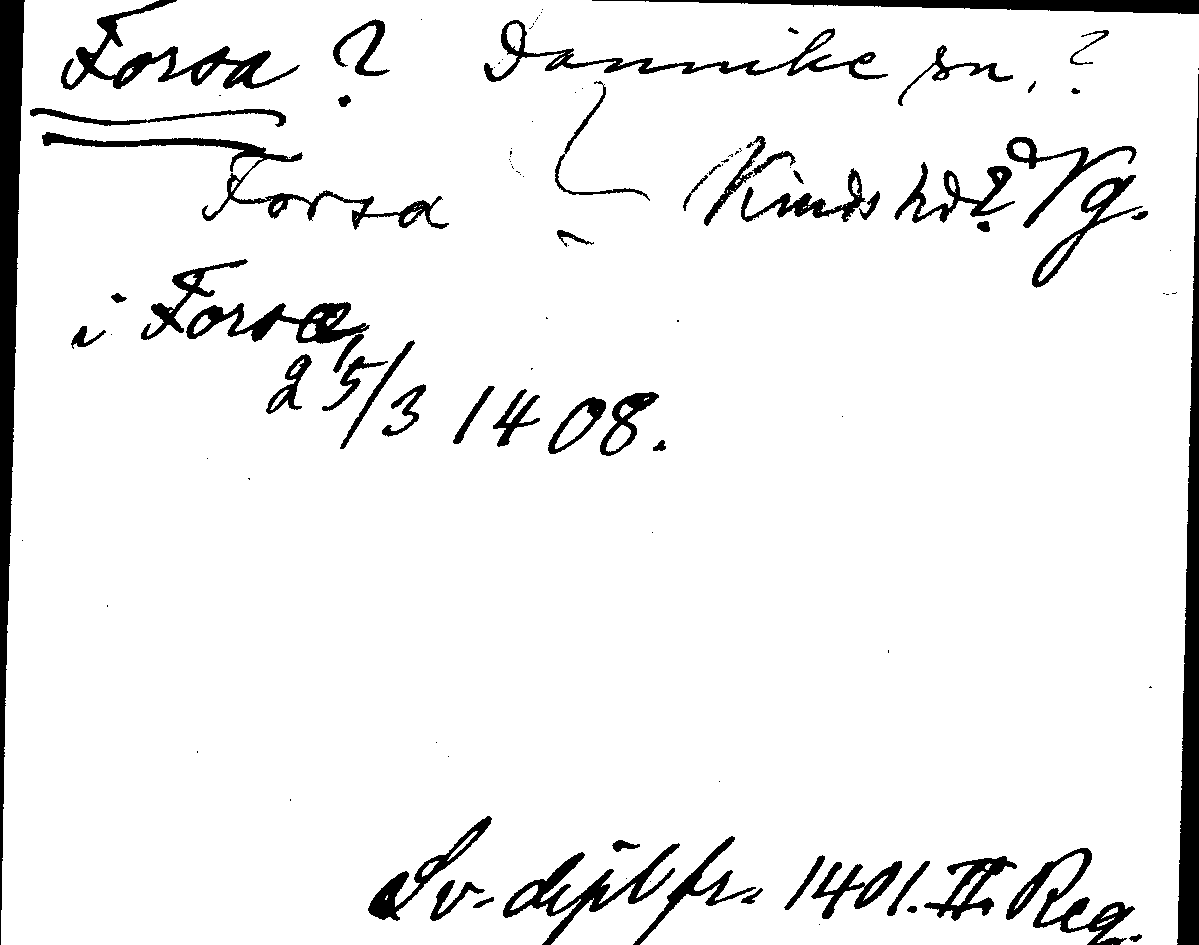 Forsa? Dannike sn.?
Forsa Kinds hd? Vg.
i Forsæ
25/3 1408.
Sv. dipl fr. 1401. II. Reg.